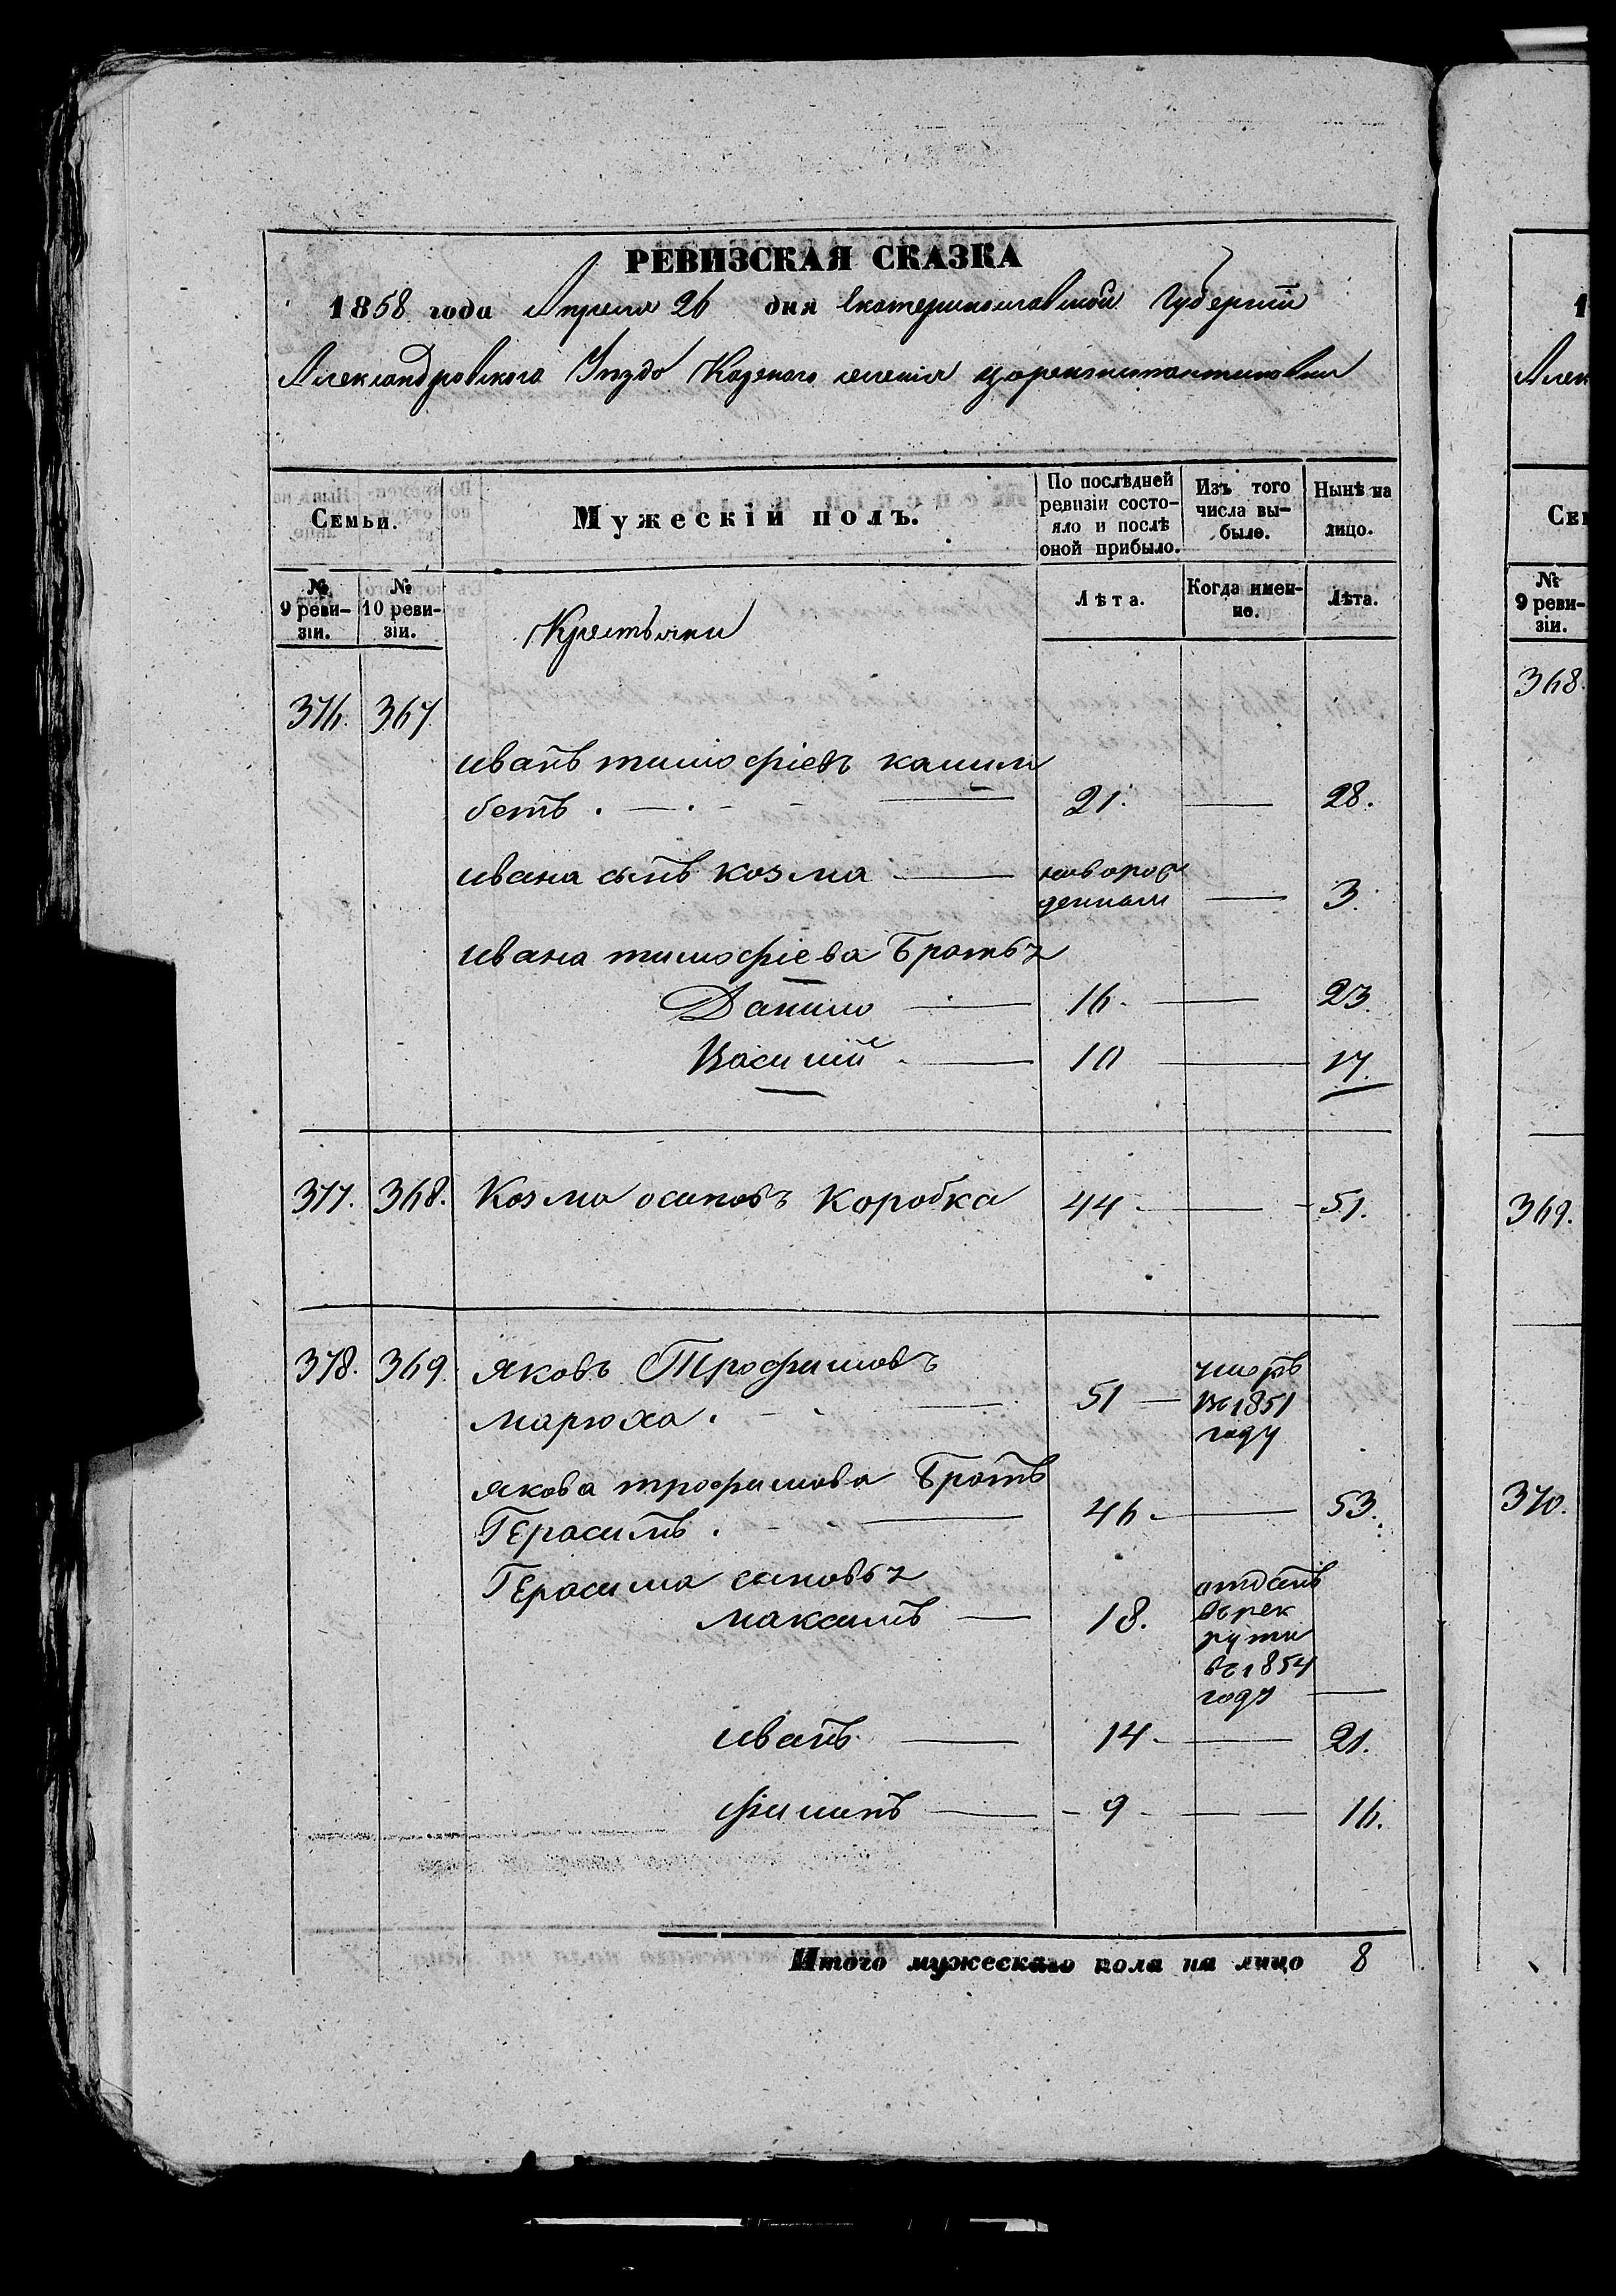 РЕВИЗСКАЯ СКАЗКА
1858 года Апреля 26 дня Екатеринославской Губернiи
Александровского Уѣзда Казеного селенiя Цареконстантиновки
Семьи.
Мужескiй полъ.
По послѣдней ревизiи состояло и послѣ оной прибыло.
Изъ того числа выбыло.
Нынѣ на лицо.
№ 9 ревизiи.
№ 10 ревизiи.
Крестьяни
Лѣта.
Когда именно.
Лѣта.
376. 367.
иванъ тимофiевъ
бетъ . — 21. — 28.
ивана сынъ козма — новорожденной — 3.
ивана тимофiева Братья
Данило — 16 — 23.
Василiй — 10 — 17.
377. 368. Козма осиповъ Коробка 44 — 51.
378. 369. яковъ Трофимовъ
марюха. — 51 — умеръ въ 1851 году
якова трофимова Братъ
Герасимъ. — 46 — 53.
Герасима сыновья
максимъ — 18. отданъ въ рекруты въ 1854 году —
иванъ — 14 — 21.
филипъ — 9 — 16.
Итого мужескаго пола на лицо 8
1
Алек
Сем
№ 9 ревизiи.
368.
369.
370.